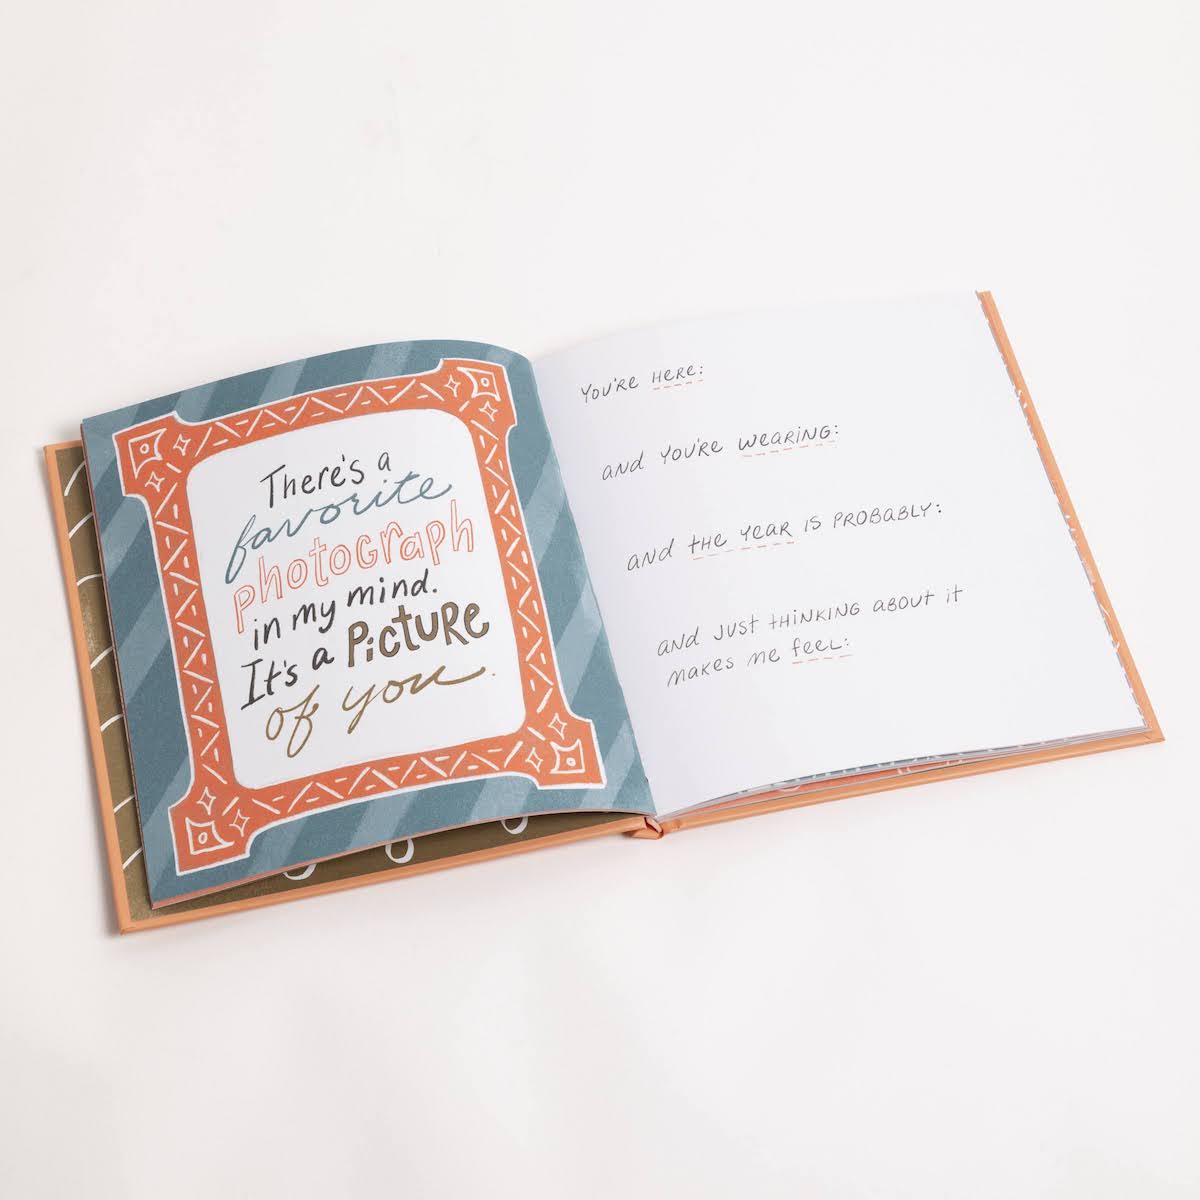 There's a
favorite
photograph
in my mind.
It's a PICTURE
of you.
YOU'RE HERE:
and YOU'RE WEARING:
and the YEAR IS PROBABLY:
and JUST tHINKING ABOUT it
MAKES ME feeL: